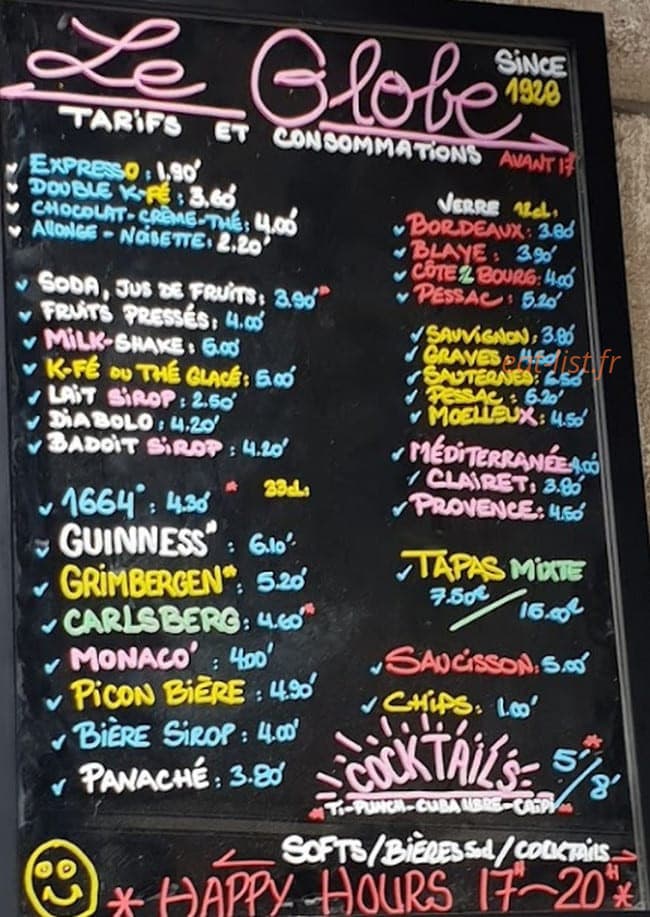 Le Globe
SINCE
1928
TARIFS ET CONSOMMATIONS
AVANT 17
EXPRESSO : 1.90'
DOUBLE K-FÉ : 3.60'
CHOCOLAT-CRÈME-THÉ : 4.00'
ALLONGE - NOISETTE : 2.20'
SODA, JUS DE FRUITS : 3.90'*
FRUITS PRESSÉS : 4.00'
MILK-SHAKE : 6.00'
K-FÉ OU THÉ GLACÉ : 5.00'
LAIT SIROP : 2.50'
DIABOLO : 4.20'
BADOIT SIROP : 4.20'
* 33cl.
1664* : 4.30'
GUINNESS* : 6.10'
GRIMBERGEN* : 5.20'
CARLSBERG : 4.60'*
MONACO' : 4.00'
PICON BIÈRE : 4.90'
BIÈRE SIROP : 4.00'
PANACHÉ : 3.80'
VERRE 12cl.
BORDEAUX : 3.80'
BLAYE : 3.90'
CÔTE 2 BOURG : 4.00
PESSAC : 5.20'
SAUVIGNON : 3.80'
GRAVES
SAUTERNES : 6.50'
PESSAC : 6.20'
MOELLEUX : 4.50'
MÉDITERRANÉE 4.00
CLAIRET : 3.80'
PROVENCE : 4.50'
TAPAS MIXTE
7.50€ / 15.00€
SAUCISSON : 5.00'
CHIPS : 1.00'
COCKTAILS 5'* / 8'
* TI-PUNCH-CUBA LIBRE-CAÏPI *
SOFTS/BIÈRES 25cl/COCKTAILS
* HAPPY HOURS 17H~20H *
eat-list.fr